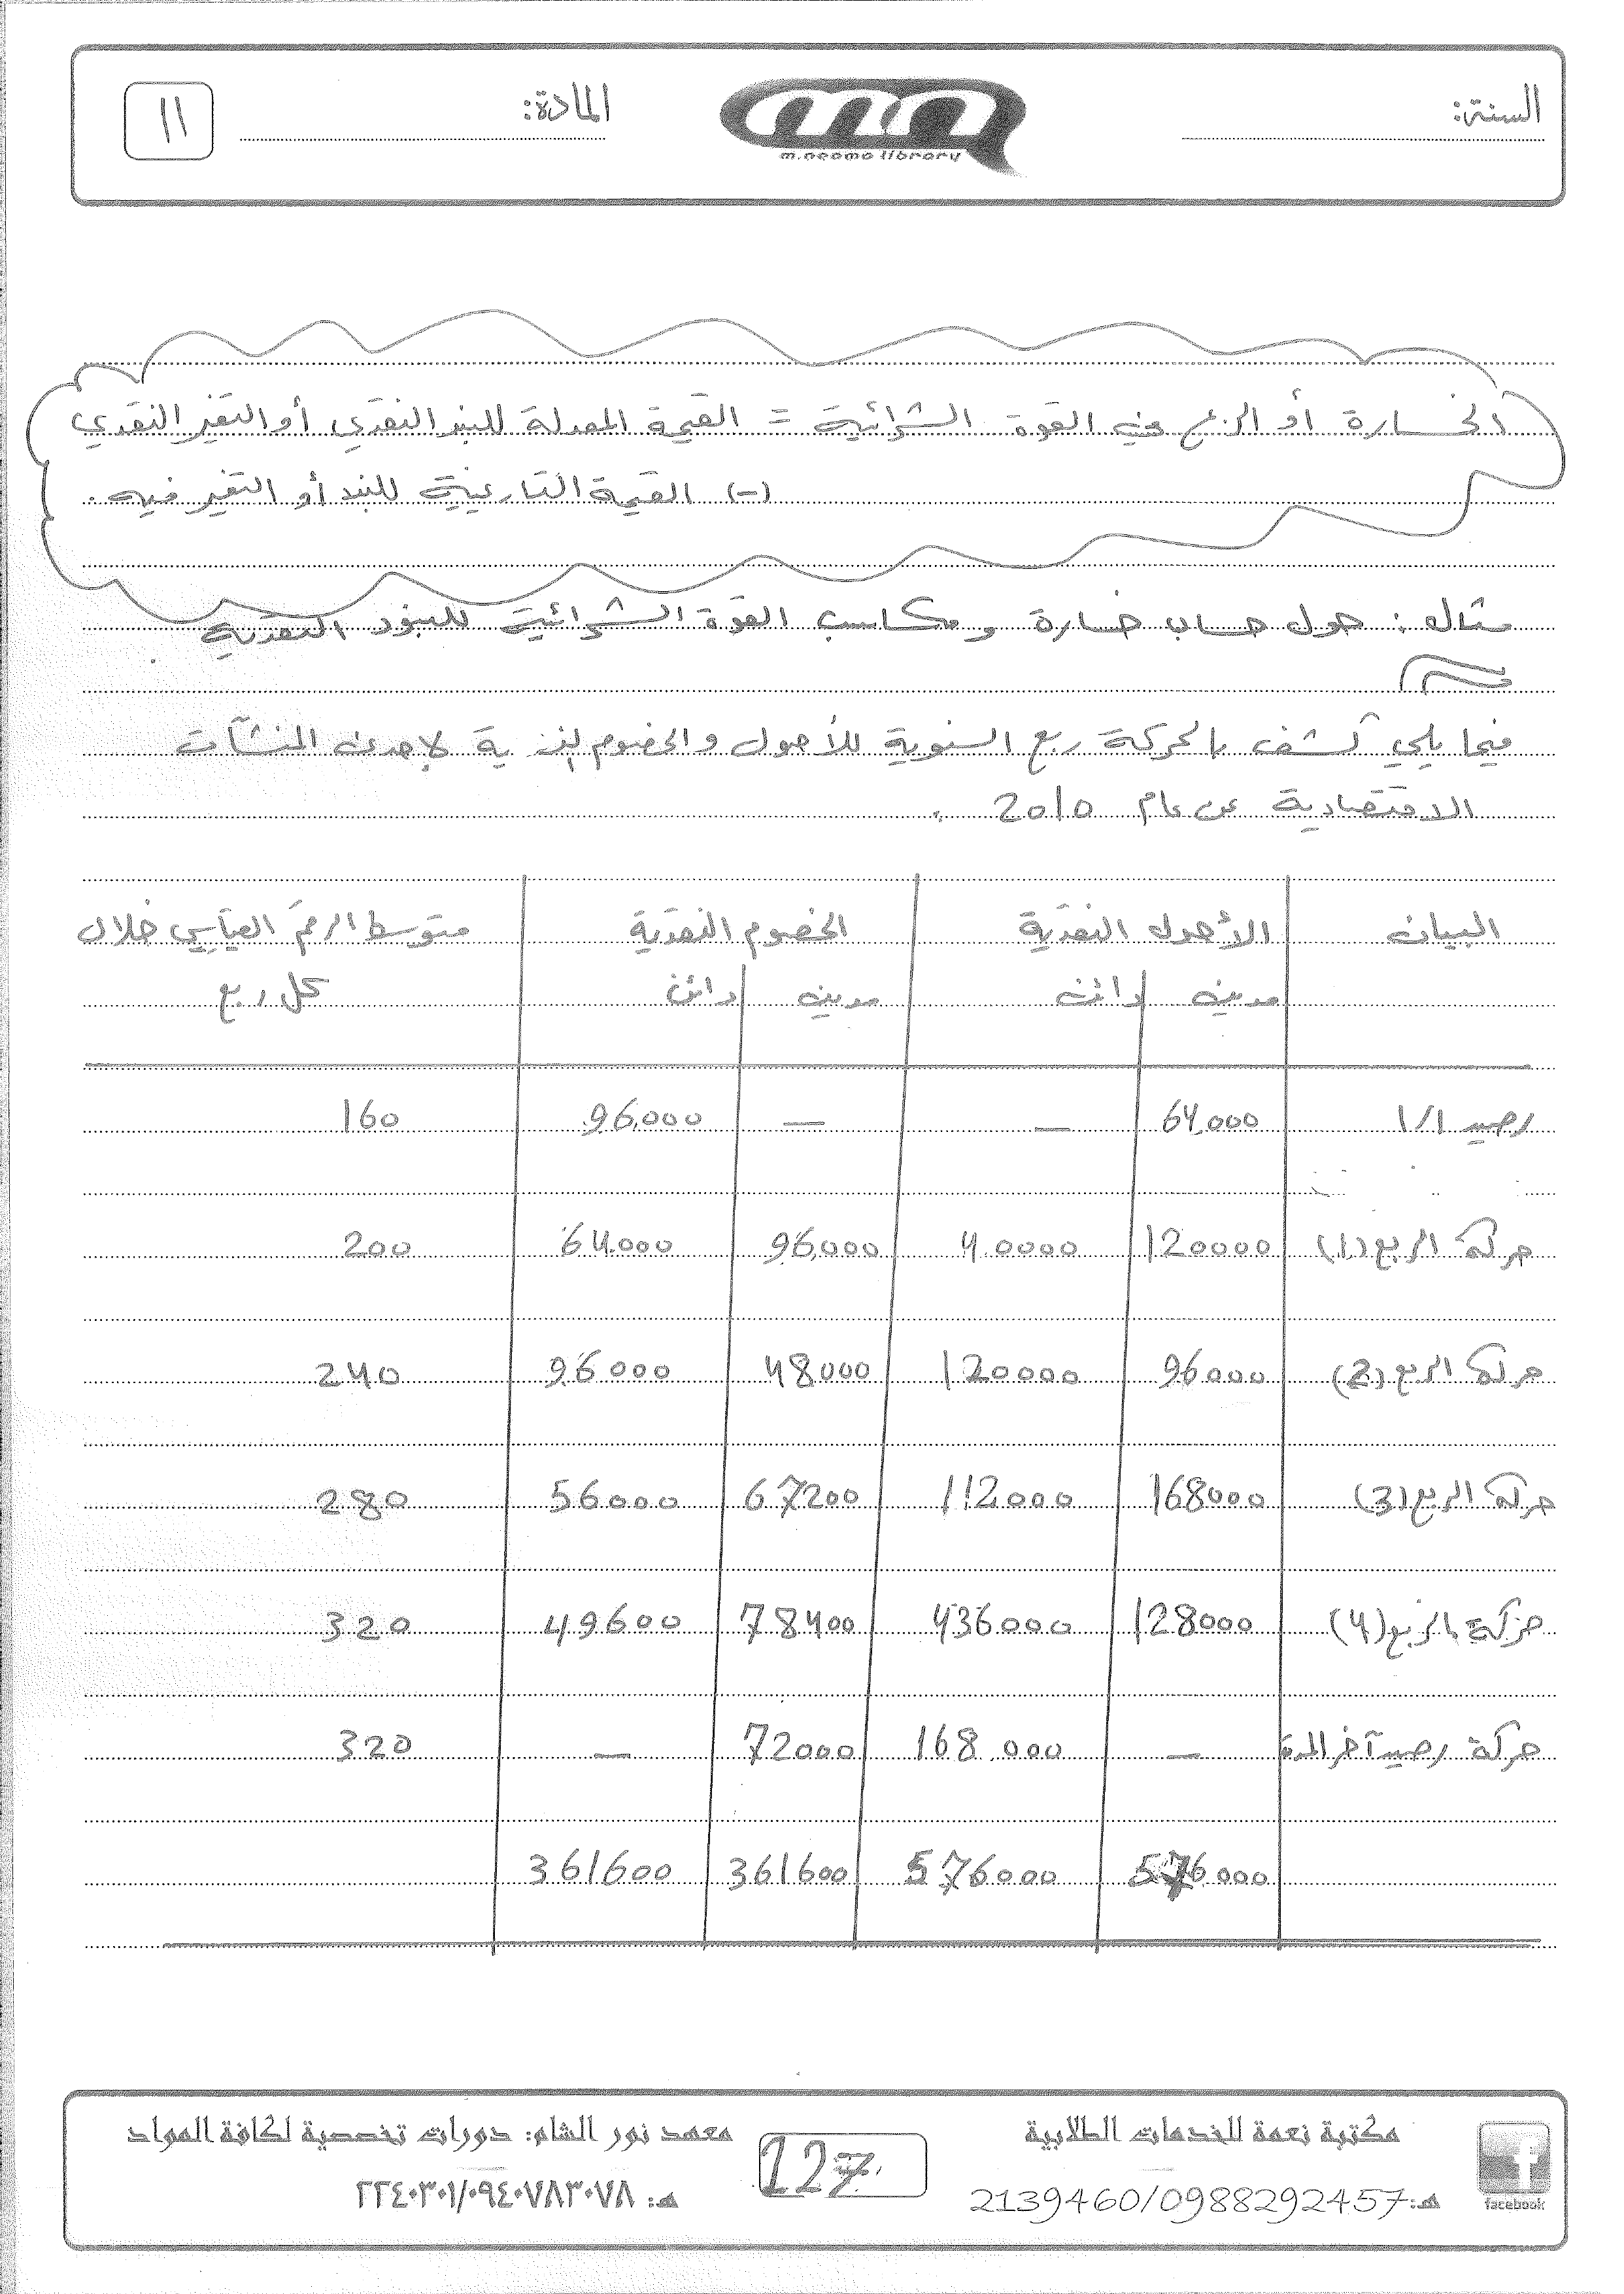 السنة:
m.neama library
المادة:
١١
الخسارة أو الربح في القوة الشرائية = القيمة المعدلة للبند النقدي أو التغير النقدي
(-) القيمة التاريخية للبند أو التغير فيه.
مثال: حول حساب خسارة ومكاسب القوة الشرائية للبنود النقدية
فيما يلي كشف بالحركة ربع السنوية للأصول والخصوم النقدية لإحدى المنشآت
الاقتصادية عن عام 2010 :
البيان الأصول النقدية الخصوم النقدية متوسط الرقم القياسي خلال
مدينة دائنة مدينة دائن كل ربع
رصيد ١/١ 64.000 — — 96.000 160
حركة الربع (1) 120000 40000 96.000 64.000 200
حركة الربع (2) 96000 120000 48000 96000 240
حركة الربع (3) 168000 112000 67200 56000 280
حركة الربع (4) 128000 436000 78400 49600 320
حركة رصيد آخر المدة — 168.000 72000 — 320
576000 576000 361600 361600
مكتبة نعمة للخدمات الطلابية
هـ: 2139460/0988292457
facebook
127
معهد نور الشام: دورات تخصصية لكافة المواد
هـ: ٢٢٤٠٣٠١/٠٩٤٠٧٨٣٠٧٨